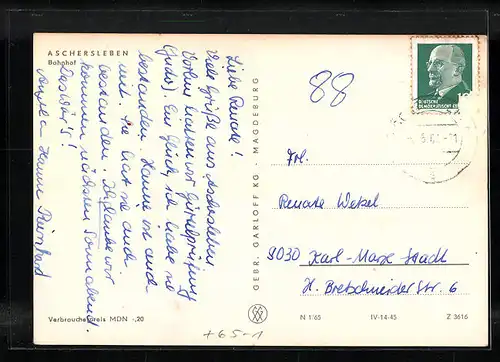 ASCHERSLEBEN
Bahnhof
Liebe Renate!
Viele Grüße aus Aschersleben
hatten wir Gürtelprüfung
(Judo). Ein Glück, ich habe sie
bestanden. Hanne ist auch
mit. Sie hat sie auch
bestanden. Ich glaube wir
kommen nächsten Sonnabend.
Verbraucherpreis MDN -,20
GEBR. GARLOFF KG. MAGDEBURG
88
10
DEUTSCHE
DEMOKRATISCHE
Frl.
Renate
9030 Karl-Marx-Stadt
H. Bretschneider Str. 6
N 1/65 IV-14-45 Z 3616
+65-1